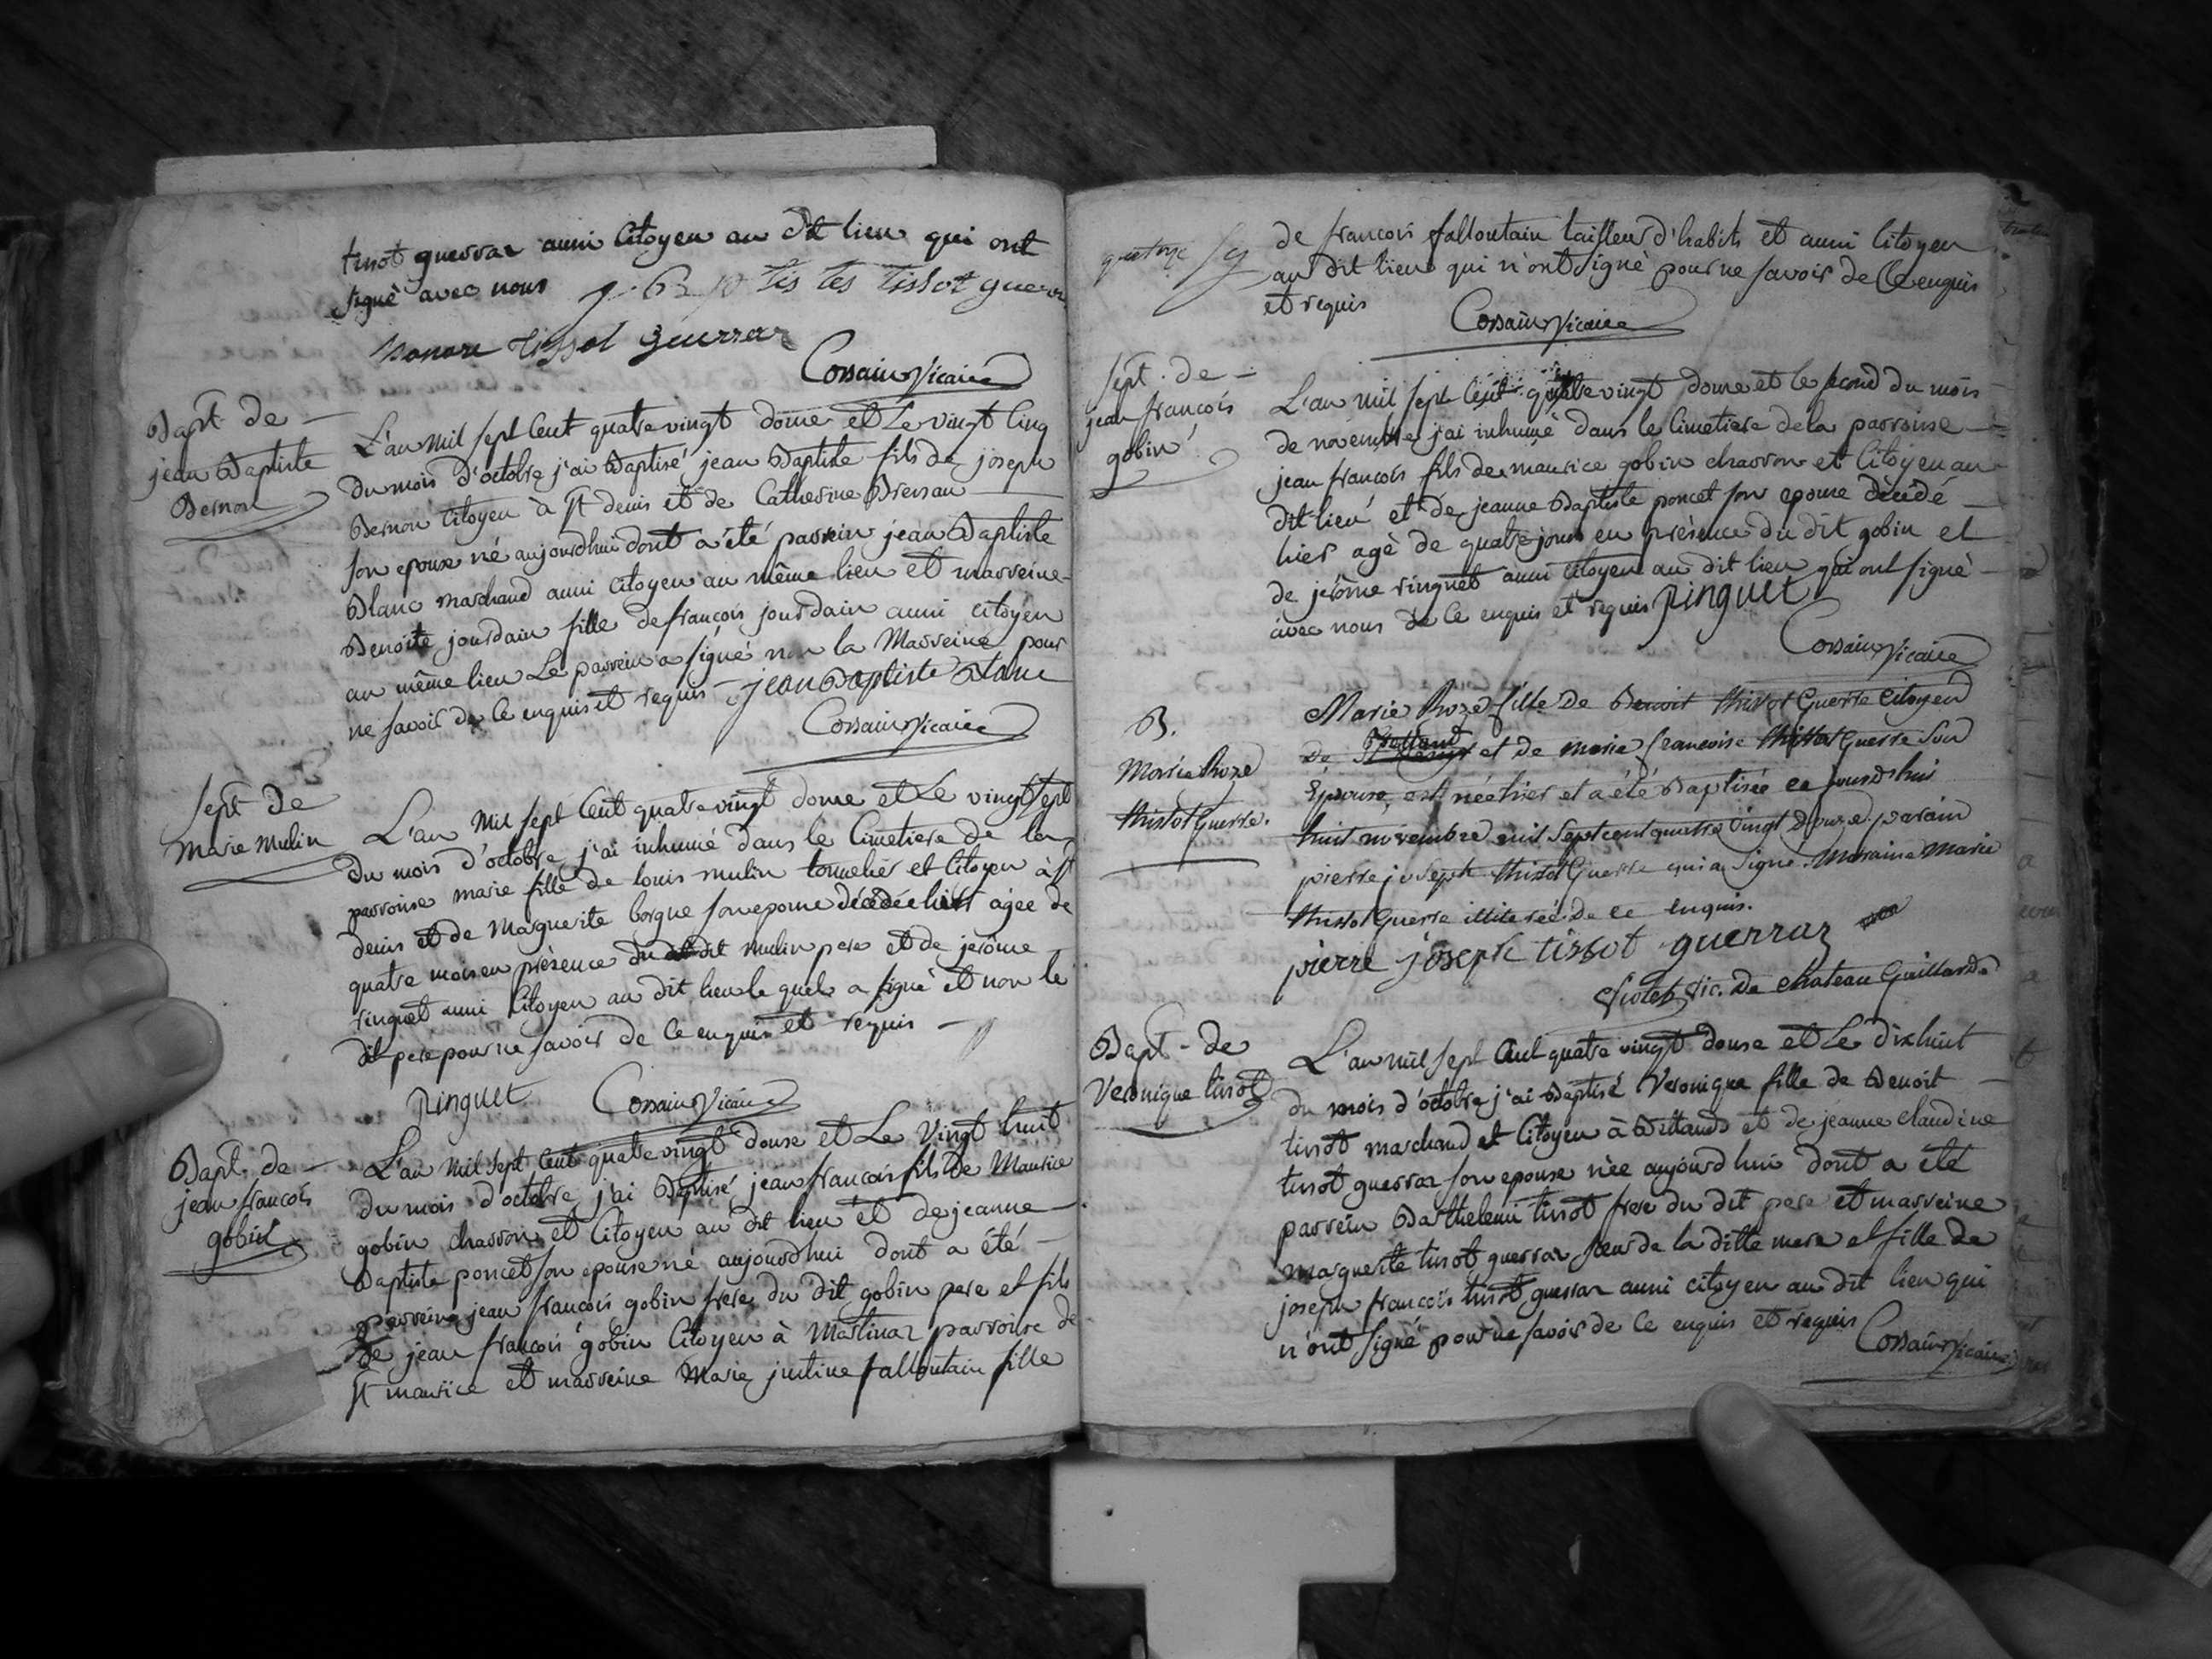 tissot guerraz aussi Citoyen au dit lieu qui ont
signé avec nous j. B. p tis tes tissot guerra
honore tissot Guerraz
Corsain vicaire
Bapt. de
jean Baptiste
Bernon
L'an mil sept Cent quatre vingt douze et Le vingt Cinq
du mois d'octobre j'ai Baptisé jean Baptiste fils de joseph
Bernon Citoyen à St denis et de Catherine
son epouse né aujourdhui dont a été parrein jean Baptiste
Blanc marchand aussi Citoyen au même lieu et marreine
Benoite jourdain fille de françois jourdain aussi citoyen
au même lieu Le parrein a signé non la Marreine pour
ne savoir de Ce enquis et requis jean Baptiste Blanc
Corsain vicaire
sept de
Marie Mulin
L'an Mil sept Cent quatre vingt douze et Le vingt sept
du mois d'octobre j'ai inhumé dans le Cimetiere de la
parroisse marie fille de louis mulin tonnelier et Citoyen à St
denis et de Marguerite borgue son epouse décédée hier agee de
quatre mois en présence du dit mulin pere et de jerôme
ringuet aussi Citoyen au dit lieu le quel a signé et non le
dit pere pour ne savoir de Ce enquis et requis
Ringuet Corsain vicaire
Bapt. de
jean françois
gobin
L'an Mil sept Cent quatre vingt douze et Le Vingt huit
du mois d'octobre j'ai Baptisé jean françois fils de Maurice
gobin charron et Citoyen au dit lieu et de jeanne
Baptiste poncet son epouse né aujourdhui dont a été
parrein jean françois gobin frere du dit gobin pere et fils
de jean françois gobin Citoyen à Martinaz parroisse de
St maurice et marreine Marie justine falloutain fille
quatorze
de francois falloutain tailleur d'habits et aussi Citoyen
au dit lieu qui n'ont signé pour ne savoir de Ce enquis
et requis
Corsain vicaire
sept. de
jean françois
gobin
L'an mil sept Cent quatre vingt douze et le second du mois
de novembre j'ai inhumé dans le Cimetiere de la parroisse
jean francois fils de maurice gobin charron et Citoyen au
dit lieu et de jeanne Baptiste poncet son epouse décédé
hier agè de quatre jours en présence du dit gobin et
de jerôme ringuet aussi Citoyen au dit lieu qui ont signè
avec nous de Ce enquis et requis Ringuet
Corsain vicaire
B.
Marie Roze
thissot Guerre.
Marie Roze fille de Benoit thissot Guerre Citoyen
Bettand
de St Denis et de marie francoise thissot Guerre son
Épouse, est née hier et a été Baptisée ce jourdhui
huit novembre mil sept cent quatre vingt douze. parain
pierre joseph thissot Guerre qui a signé. Maraine Marie
thissot Guerre illiterée de ce enquis.
pierre joseph tissot guerraz
vic. de chateau Gaillard
Bapt. de
Veronique tissot
L'an mil sept Cent quatre vingt douse et Le dixhuit
du mois d'octobre j'ai Baptisé Veronique fille de Benoit
tissot marchand et Citoyen à Bettand et de jeanne claudine
tissot guerraz son epouse née aujourd hui dont a été
parrein Barthelemi tissot frere du dit pere et marreine
marguerite tissot guerraz soeur de la ditte mere et fille de
joseph françois tissot guerraz aussi citoyen au dit lieu qui
n'ont signé pour ne savoir de Ce enquis et requis
Corsain vicaire